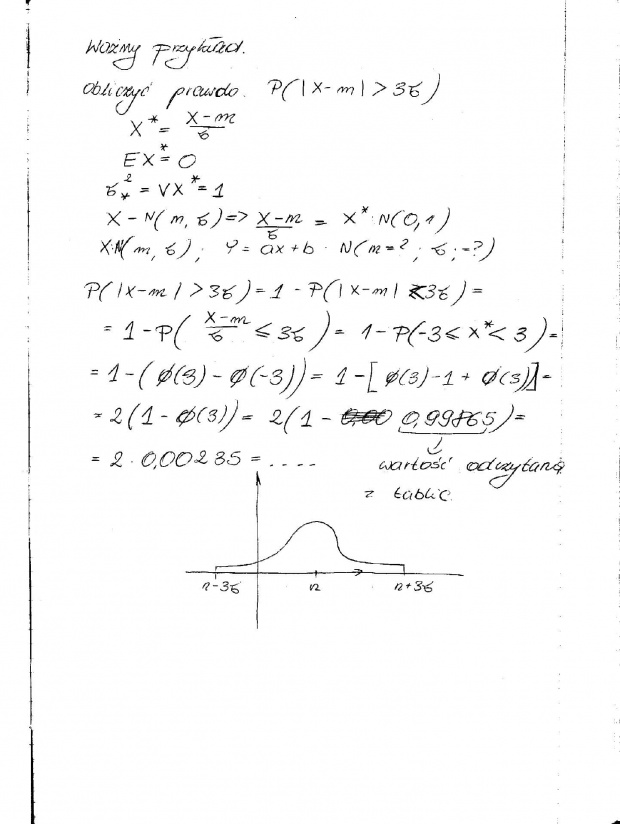 Ważny przykład.
Obliczyć prawdo. P(|X-m|>3σ)
X* = (X-m)/σ
EX* = 0
σ*² = VX* = 1
X - N(m, σ) => (X-m)/σ = X* : N(0,1)
X:N(m, σ) ; Y = ax+b · N(m=? ; σ;=?)
P(|X-m|>3σ) = 1 - P(|X-m| < 3σ) =
= 1 - P( (X-m)/σ ≤ 3σ ) = 1 - P(-3 ≤ X* < 3) =
= 1 - (φ(3) - φ(-3)) = 1 - [φ(3) - 1 + φ(3)] =
= 2(1 - φ(3)) = 2(1 - 0,99865) =
= 2 · 0,00235 = ....
wartość odczytana
z tablic.
n-3σ n n+3σ